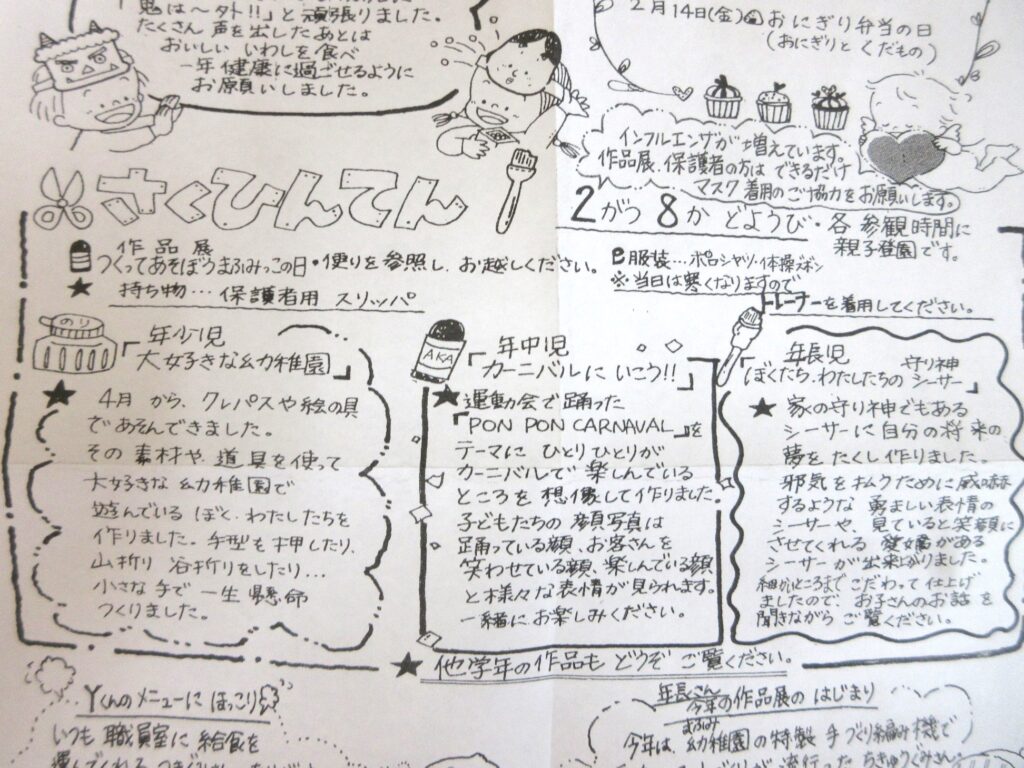 「鬼は～外!!」と頑張りました。
たくさん 声を出したあとは
おいしい いわしを食べ
一年健康に過ごせるように
お願いしました。
2月14日(金) おにぎり弁当の日
(おにぎりと くだもの)
インフルエンザが 増えています。
作品展、保護者の方は できるだけ
マスク着用のご協力をお願いします。
さくひんてん
2がつ 8か どようび・各参観時間に
親子登園です。
作品展
つくってあそぼうまふみっこの日・便りを参照し、お越しください。
★ 持ち物… 保護者用 スリッパ
服装…ポロシャツ・体操ズボン
※当日は寒くなりますので
トレーナーを着用してください。
のり
年少児
「大好きな幼稚園」
★ 4月 から、クレパスや絵の具
であそんできました。
その 素材や 道具を使って
大好きな 幼稚園で
遊んでいる ぼく・わたしたちを
作りました。手型を押したり、
山折り 谷折りをしたり…
小さな 手で 一生懸命
つくりました。
AKA
年中児
「カーニバルに いこう!!」
★運動会で踊った
「PON PON CARNAVAL」を
テーマに ひとりひとりが
カーニバルで 楽しんでいる
ところを 想像して作りました。
子どもたちの 顔写真は
踊っている顔、お客さんを
笑わせている顔、楽しんでいる顔
と様々な表情が見られます。
一緒にお楽しみください。
年長児
「ぼくたち、わたしたちの 守り神 シーサー」
★ 家の守り神でもある
シーサーに自分の将来の
夢を たくし 作りました。
邪気を払うために威嚇
するような 勇ましい表情の
シーサーや、見ていると笑顔に
させてくれる 愛嬌がある
シーサーが 出来上がりました。
細かいところまで こだわって 仕上げ
ましたので、お子さんのお話を
聞きながら ご覧ください。
★ 他学年の作品も どうぞ ご覧ください。
Yくんのメニューに ほっこり
いつも 職員室に 給食を
年長さん
今年の作品展の はじまり
今年は、まふみ幼稚園の特製 手づくり編み機で